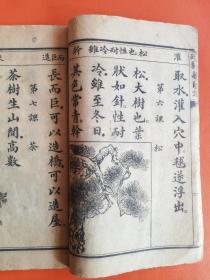 灌 取水灌入穴中。毬遂浮出。
第六課 松
松也性耐冷雖 幹
松。大樹也。葉
狀如針。性耐
冷。雖至冬日。
其色常青。幹
長而巨。可以造橋。可以造屋。
第七課 茶
茶樹生山間。高數